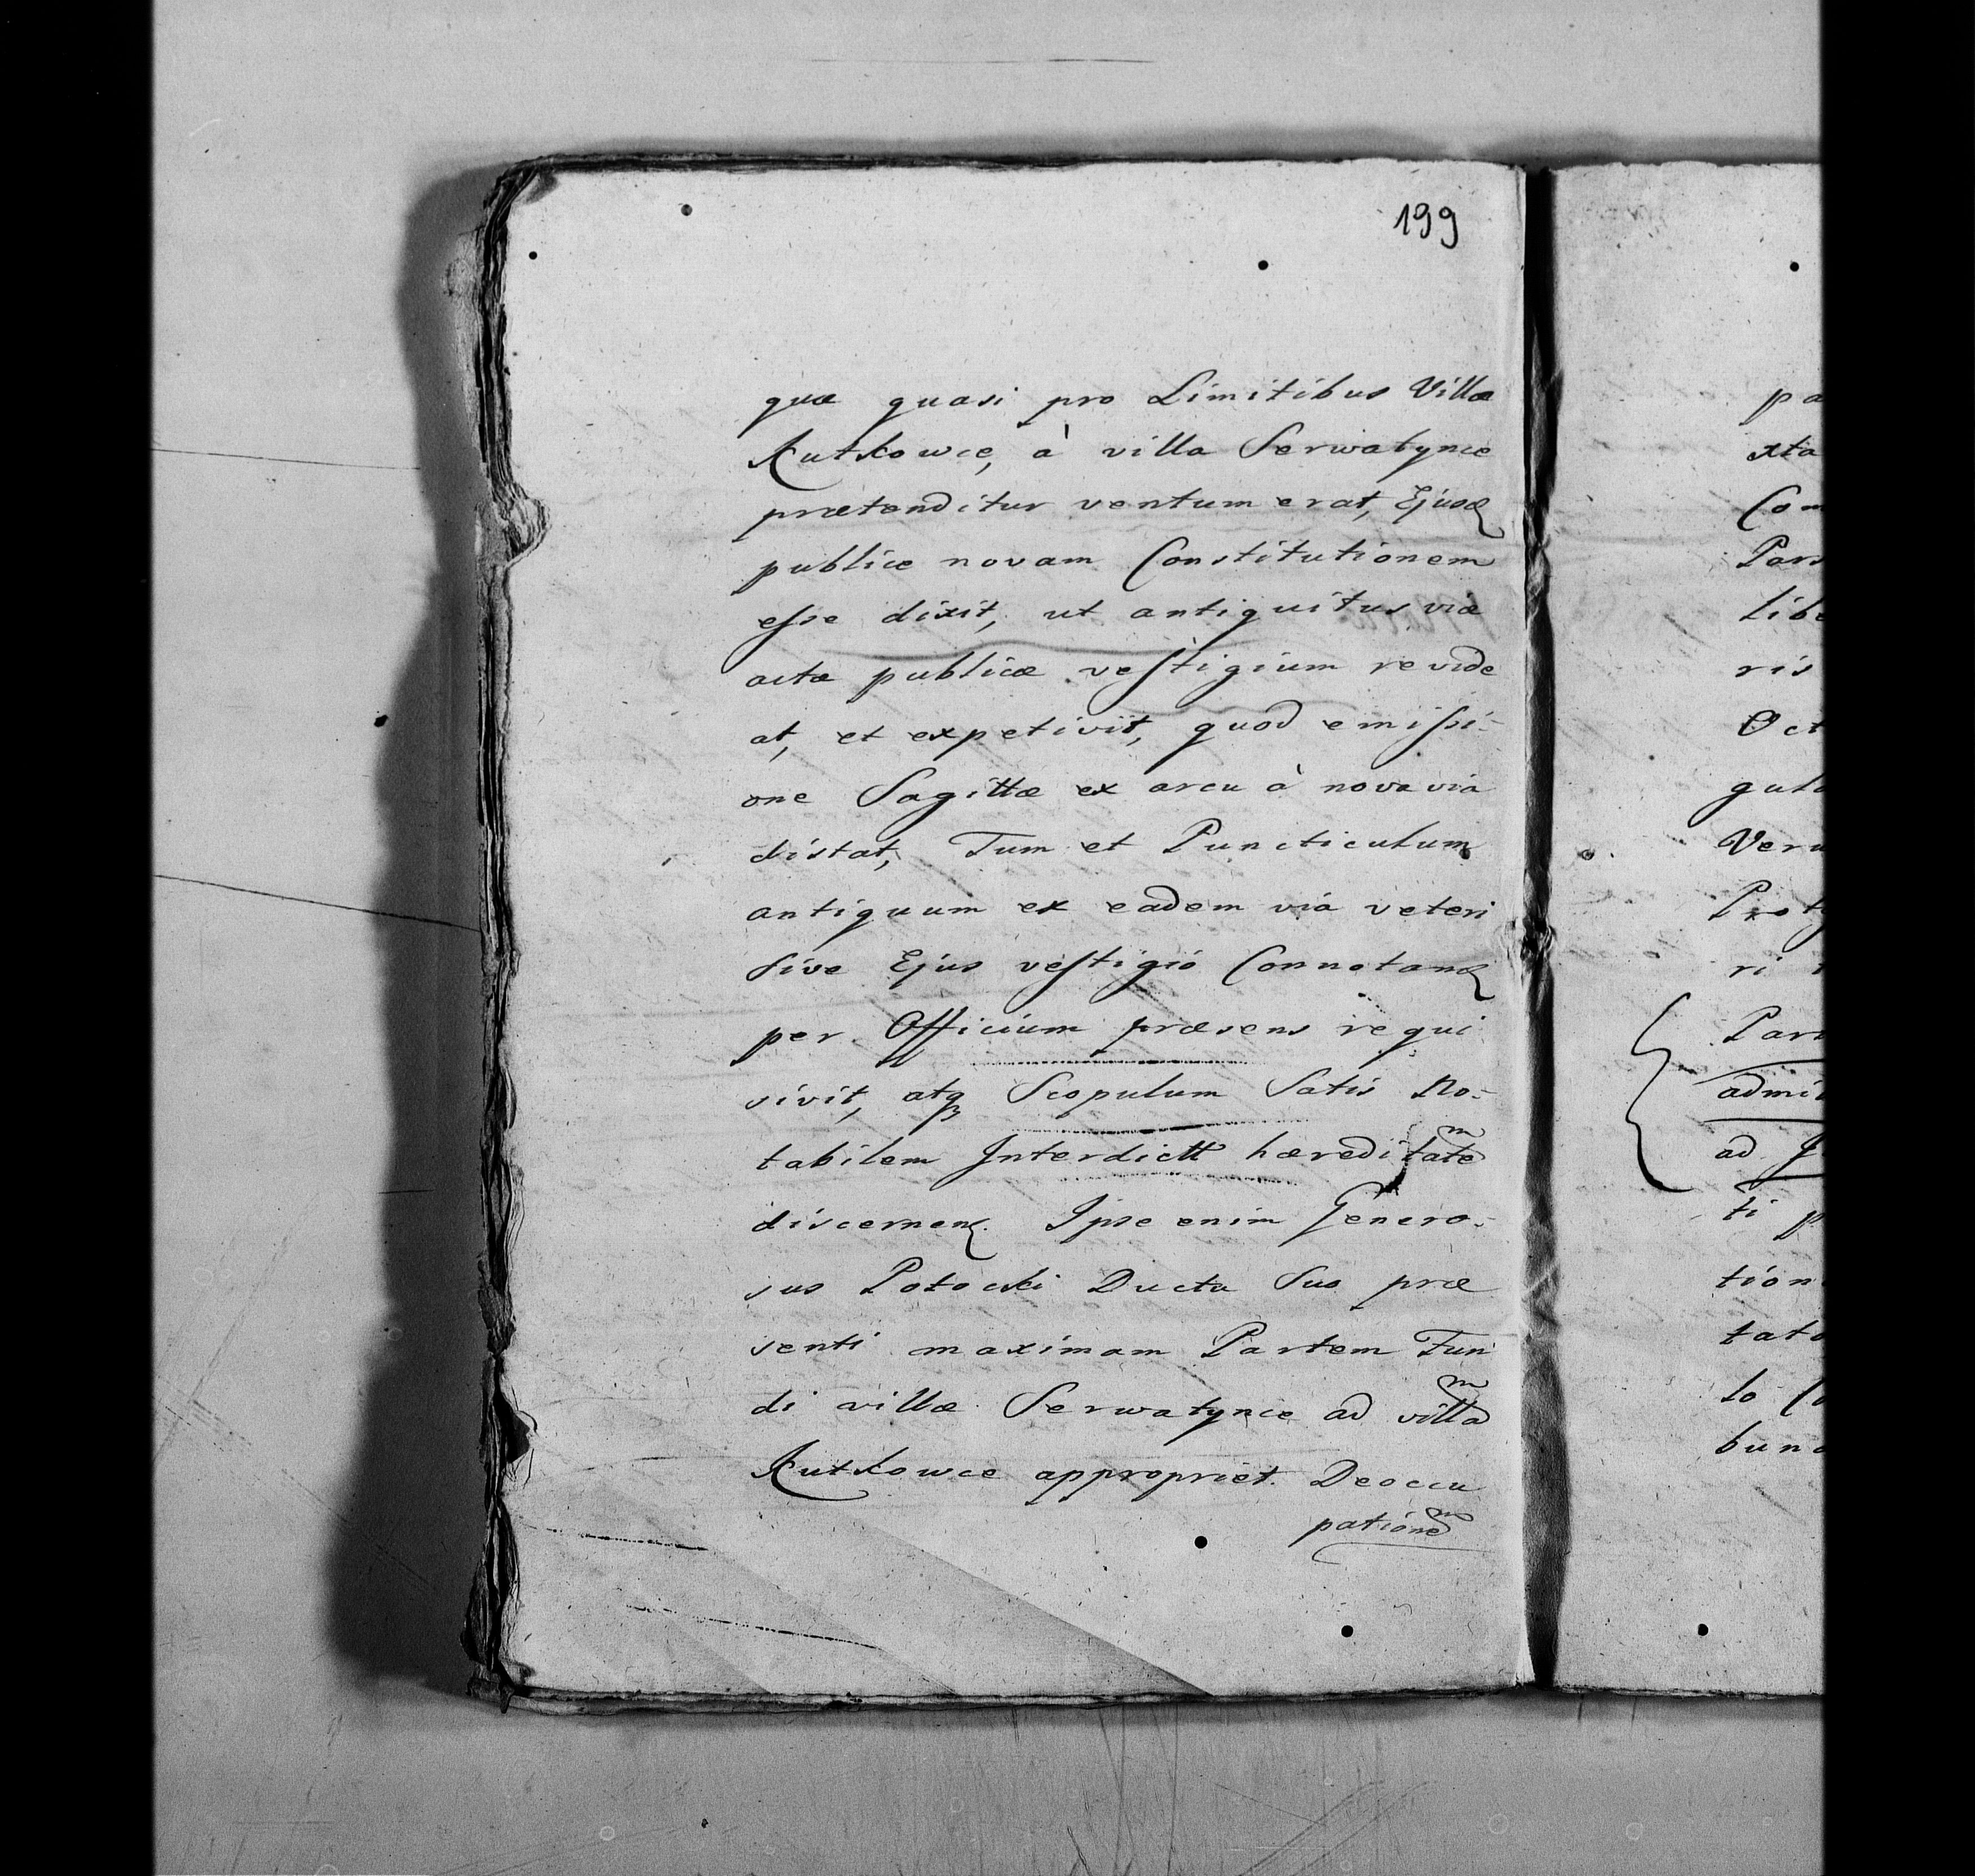 199
quæ quasi pro Limitibus Villæ
Kutkowce, à villa Serwatynce
prætenditur ventum erat, Ejusq
publice novam Constitutionem
esse dixit, ut antiquitus viæ
actæ publicæ vestigium revide
at, et expetivit, quod emissi-
one Sagittæ ex arcu à nova via
distat, Tum et Puncticulum
antiquum ex eadem via veteri
sive Ejus vestigio Connotanꝗ
per Officium præsens requi
sivit, atq Scopulum Satis No-
tabilem Interdictt hæreditatem
discernenꝗ. Ipse enim Genero-
sus Potocki Ductu Suo præ
senti maximam Partem Fun
di villæ Serwatynce ad villam
Kutkowce appropriet. Deoccu
patione
pa
xta
Com
Pars
libe
ris
Oct
gula
Veru
ri
Pars
admi
ad
ti p
tion
tato
lo
bund